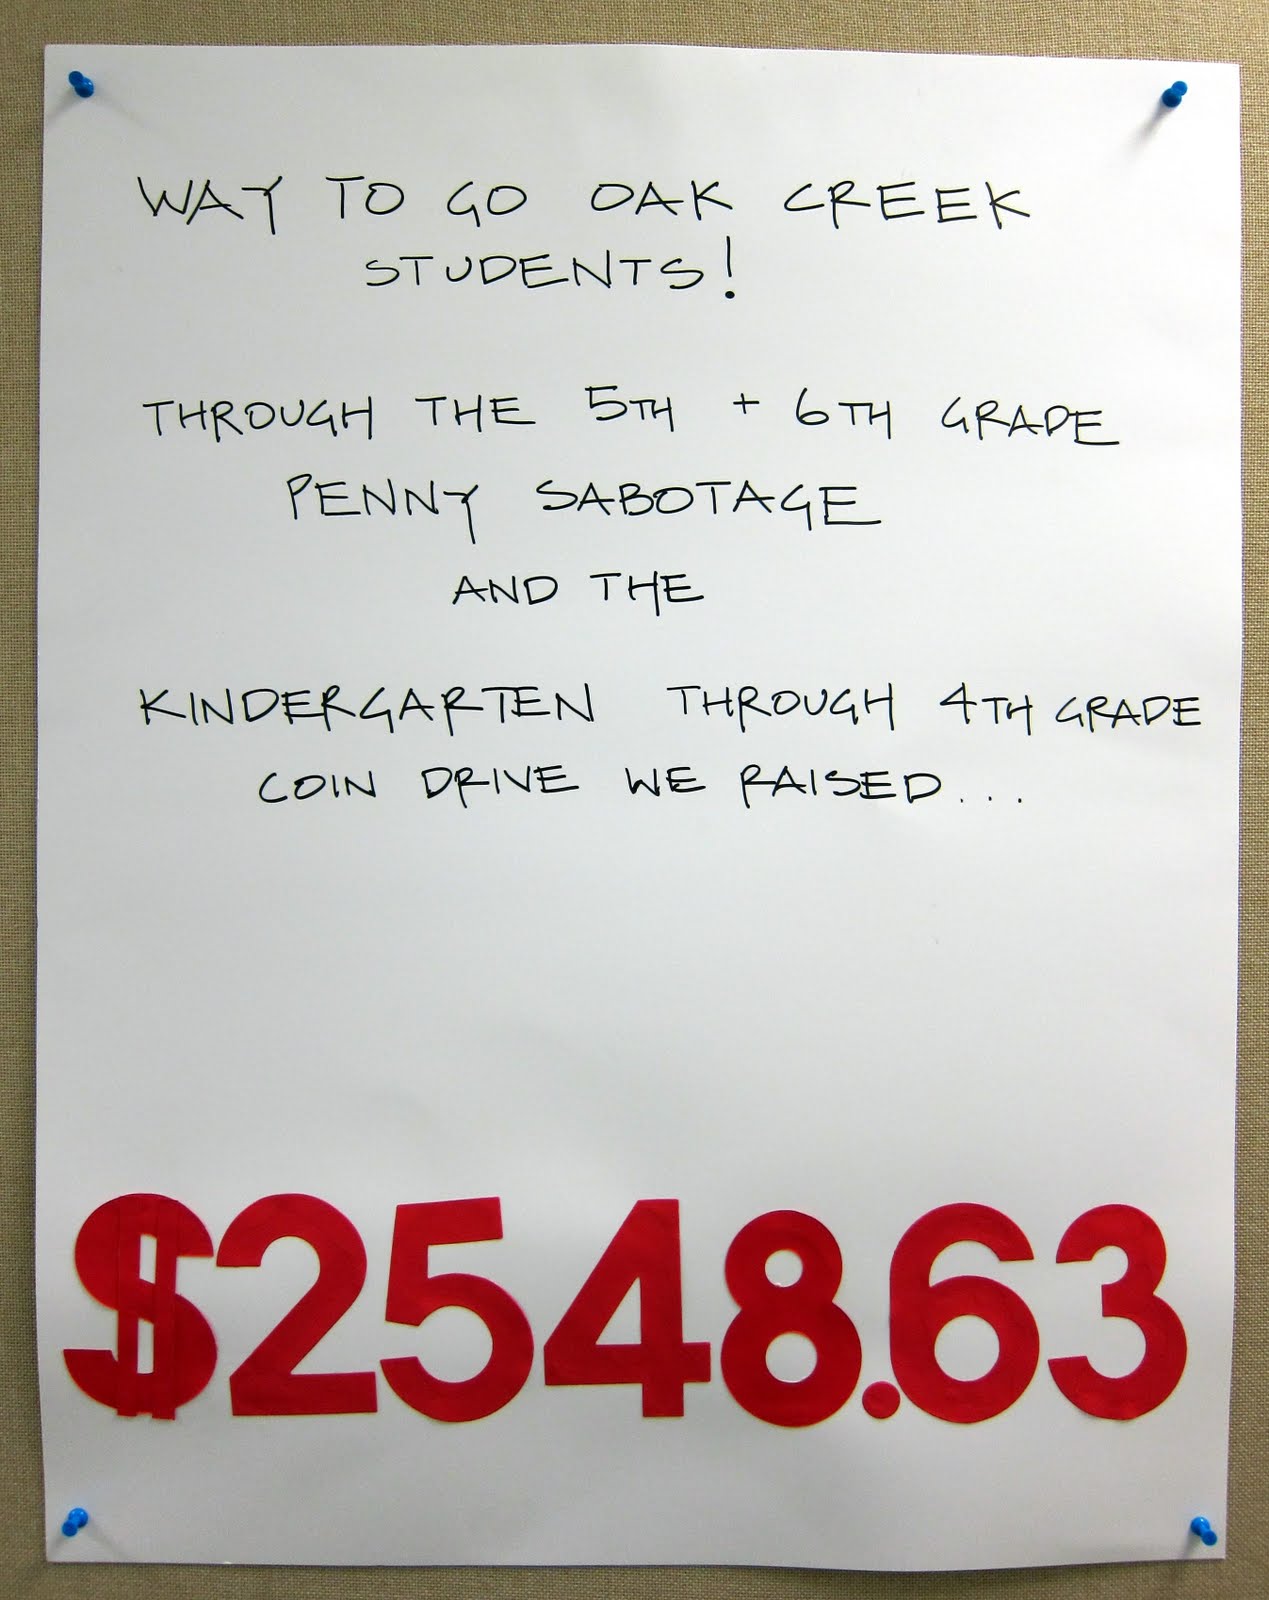 WAY TO GO OAK CREEK
STUDENTS!
THROUGH THE 5TH + 6TH GRADE
PENNY SABOTAGE
AND THE
KINDERGARTEN THROUGH 4TH GRADE
COIN DRIVE WE RAISED...
$2548.63